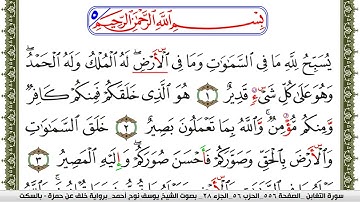 بِسْمِ ٱللَّهِ ٱلرَّحْمَٰنِ ٱلرَّحِيمِ ٥
يُسَبِّحُ لِلَّهِ مَا فِى ٱلسَّمَٰوَٰتِ وَمَا فِى ٱلْأَرْضِ ۖ لَهُ ٱلْمُلْكُ وَلَهُ ٱلْحَمْدُ ۖ
وَهُوَ عَلَىٰ كُلِّ شَىْءٍ قَدِيرٌ ١ هُوَ ٱلَّذِى خَلَقَكُمْ فَمِنكُمْ كَافِرٌ
وَمِنكُم مُّؤْمِنٌ ۚ وَٱللَّهُ بِمَا تَعْمَلُونَ بَصِيرٌ ٢ خَلَقَ ٱلسَّمَٰوَٰتِ
وَٱلْأَرْضَ بِٱلْحَقِّ وَصَوَّرَكُمْ فَأَحْسَنَ صُوَرَكُمْ ۖ وَإِلَيْهِ ٱلْمَصِيرُ ٣
سورة التغابن _ الصفحة ٥٥٦ _ الحزب ٥٦ _ الجزء ٢٨ _ بصوت الشيخ يوسف نوح أحمد _ برواية خلف عن حمزة - بالسكت